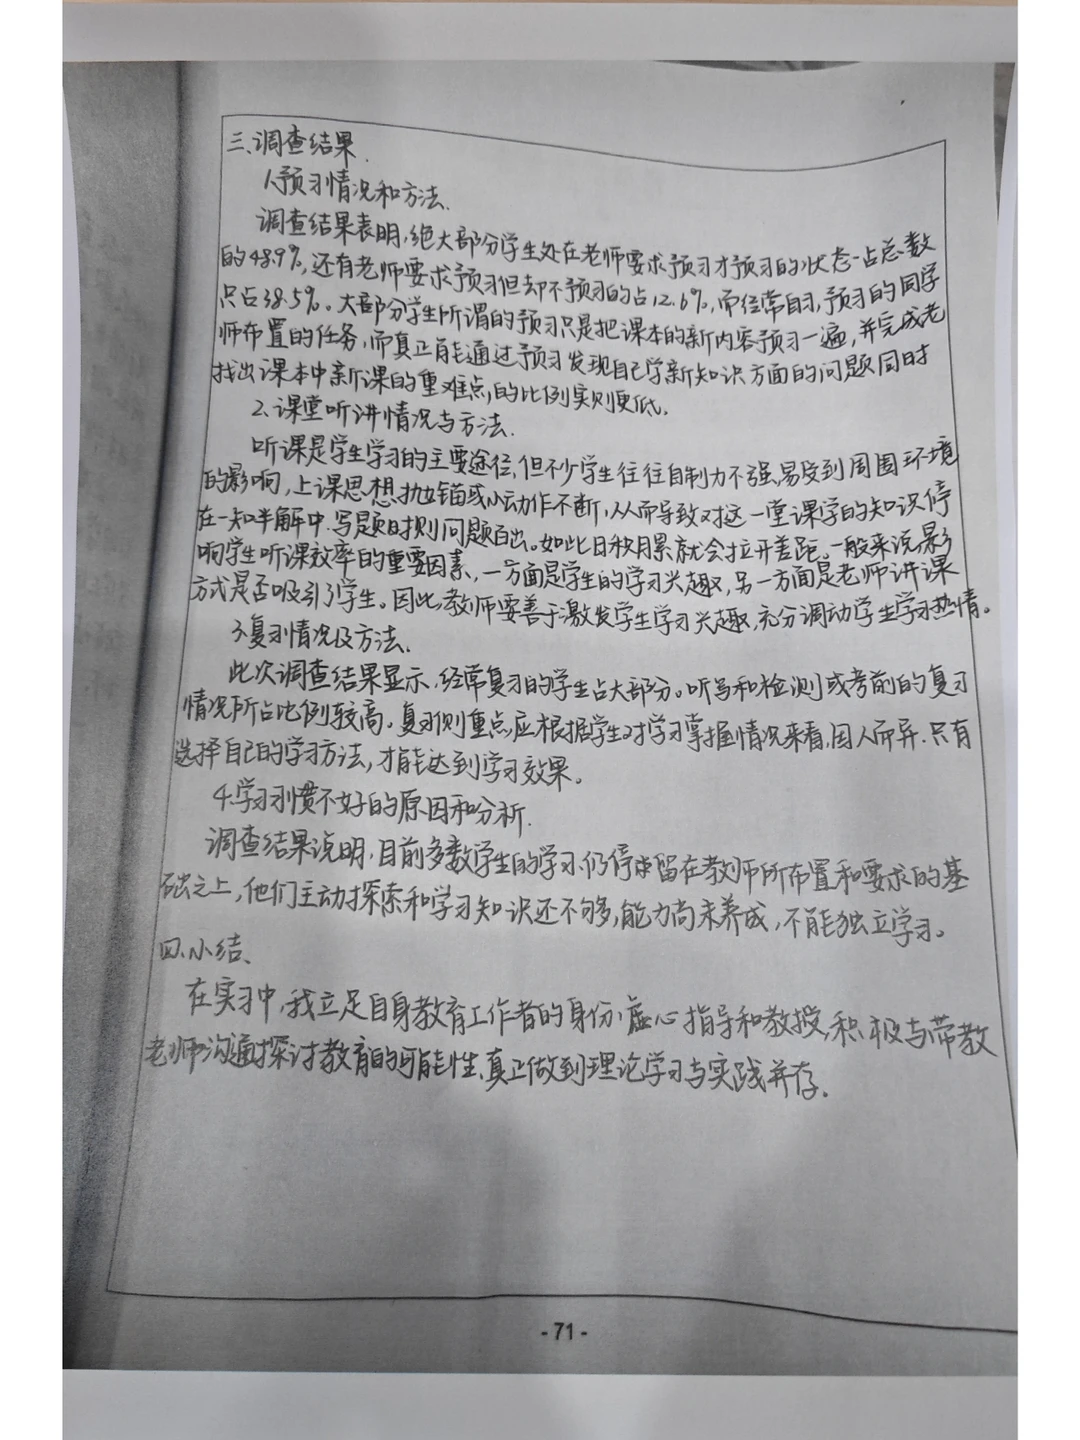 三、调查结果.
1、预习情况和方法.
调查结果表明,绝大部分学生处在老师要求预习才预习的状态-占总数
的48.9%,还有老师要求预习但却不预习的占12.6%,而经常自习,预习的同学
只占38.5%。大部分学生所谓的预习只是把课本的新内容预习一遍,并完成老
师布置的任务,而真正能通过预习发现自己学新知识方面的问题同时
找出课本中新课的重难点,的比例实则更低.
2、课堂听讲情况与方法.
听课是学生学习的主要途径,但不少学生往往自制力不强,易受到周围环境
的影响,上课思想抛锚或小动作不断,从而导致对这一堂课学的知识停
在一知半解中.写题时则问题百出。如此日积月累就会拉开差距。一般来说,影
响学生听课效率的重要因素,一方面是学生的学习兴趣,另一方面是老师讲课
方式是否吸引了学生。因此,教师要善于激发学生学习兴趣,充分调动学生学习热情。
3.复习情况及方法.
此次调查结果显示,经常复习的学生占大部分。听写和检测或考前的复习
情况所占比例较高。复习侧重点,应根据学生对学习掌握情况来看,因人而异.只有
选择自己的学习方法,才能达到学习效果。
4.学习习惯不好的原因和分析.
调查结果说明,目前多数学生的学习仍停留在教师所布置和要求的基
础之上,他们主动探索和学习知识还不够,能力尚未养成,不能独立学习。
四、小结、
在实习中,我立足自身教育工作者的身份,虚心指导和教授,积极与带教
老师沟通探讨教育的可能性,真正做到理论学习与实践并存.
- 71 -